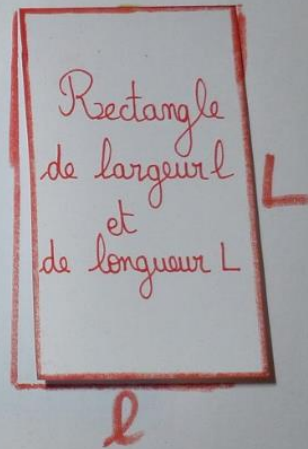 Rectangle
de largeur l
et
de longueur L
L
l